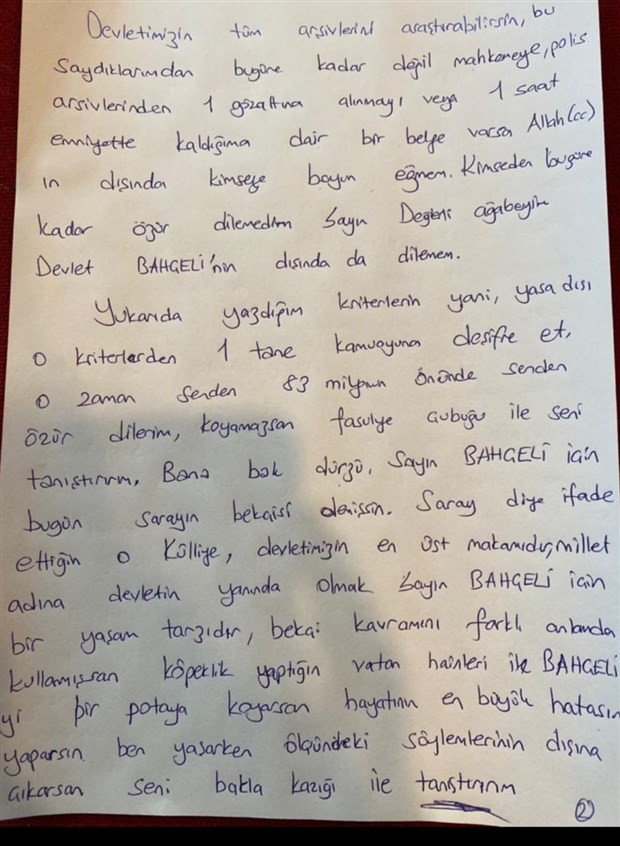 Devletimizin tüm arşivlerini araştırabilirsin, bu
saydıklarımdan bugüne kadar değil mahkemeye, polis
arşivlerinden 1 gözaltına alınmayı veya 1 saat
emniyette kaldığıma dair bir belge varsa Allah (cc)
ın dışında kimseye boyun eğmem. Kimseden bugüne
kadar özür dilemedim Sayın ağabeyim
Devlet BAHÇELİ'nin dışında da dilemem.
Yukarıda yazdığım kriterlerin yani, yasa dışı
o kriterlerden 1 tane kamuoyuna deşifre et,
o zaman senden 83 milyonun önünde senden
özür dilerim, koyamazsan fasulye çubuğu ile seni
tanıştırırım, Bana bak dürzü, Sayın BAHÇELİ için
bugün sarayın bekaisi demişsin. Saray diye ifade
ettiğin o Külliye, devletimizin en üst makamıdır, millet
adına devletin yanında olmak Sayın BAHÇELİ için
bir yaşam tarzıdır, bekai kavramını farklı anlamda
kullanmışsan köpeklik yaptığın vatan hainleri ile BAHÇELİ
yi bir potaya koyarsan hayatının en büyük hatasın
yaparsın ben yaşarken ölçündeki söylemlerinin dışına
çıkarsan seni bakla kazığı ile tanıştırırım
2